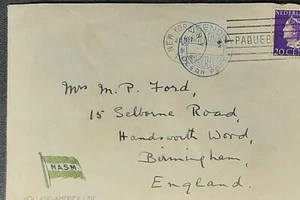 NEW YORK
OCEAN POST
PAQUEB
NEDERL
20 C
Mrs M. P. Ford,
15 Selborne Road,
Handsworth Wood,
Birmingham,
England.
NASM
HOLLAND-AMERICA LINE